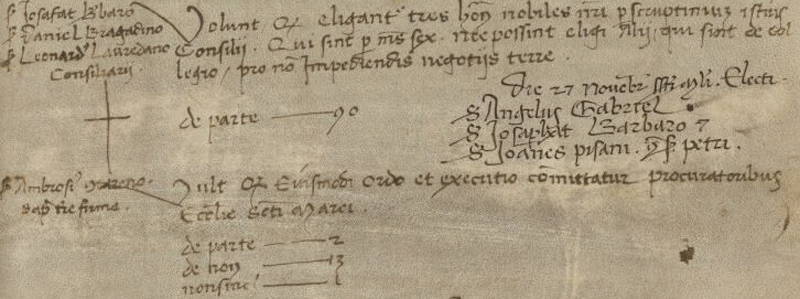 S. Josafat Barbaro
S. Daniel Bragadino
S. Leonard. Lauredano
Consiliarii.
Volunt, qd eligant tres hon. nobiles nri p scruptinium istius
Consilii. Qui sint p ms sex. nec possint eligi Alii, qui sint de col
legio, pro no Impediendis negotijs terre.
Die 27 Novebr. Electi.
de parte 90
S. Angelus Gabriel
S. Josaphat Barbaro
S. Joanes pisani. petri.
S. Ambrosi
Vult qd Eiusmodi ordo et executio comittatur procuratoribus
Ecclie Scti Marci.
de parte 2
de non 13
non sinc. 1